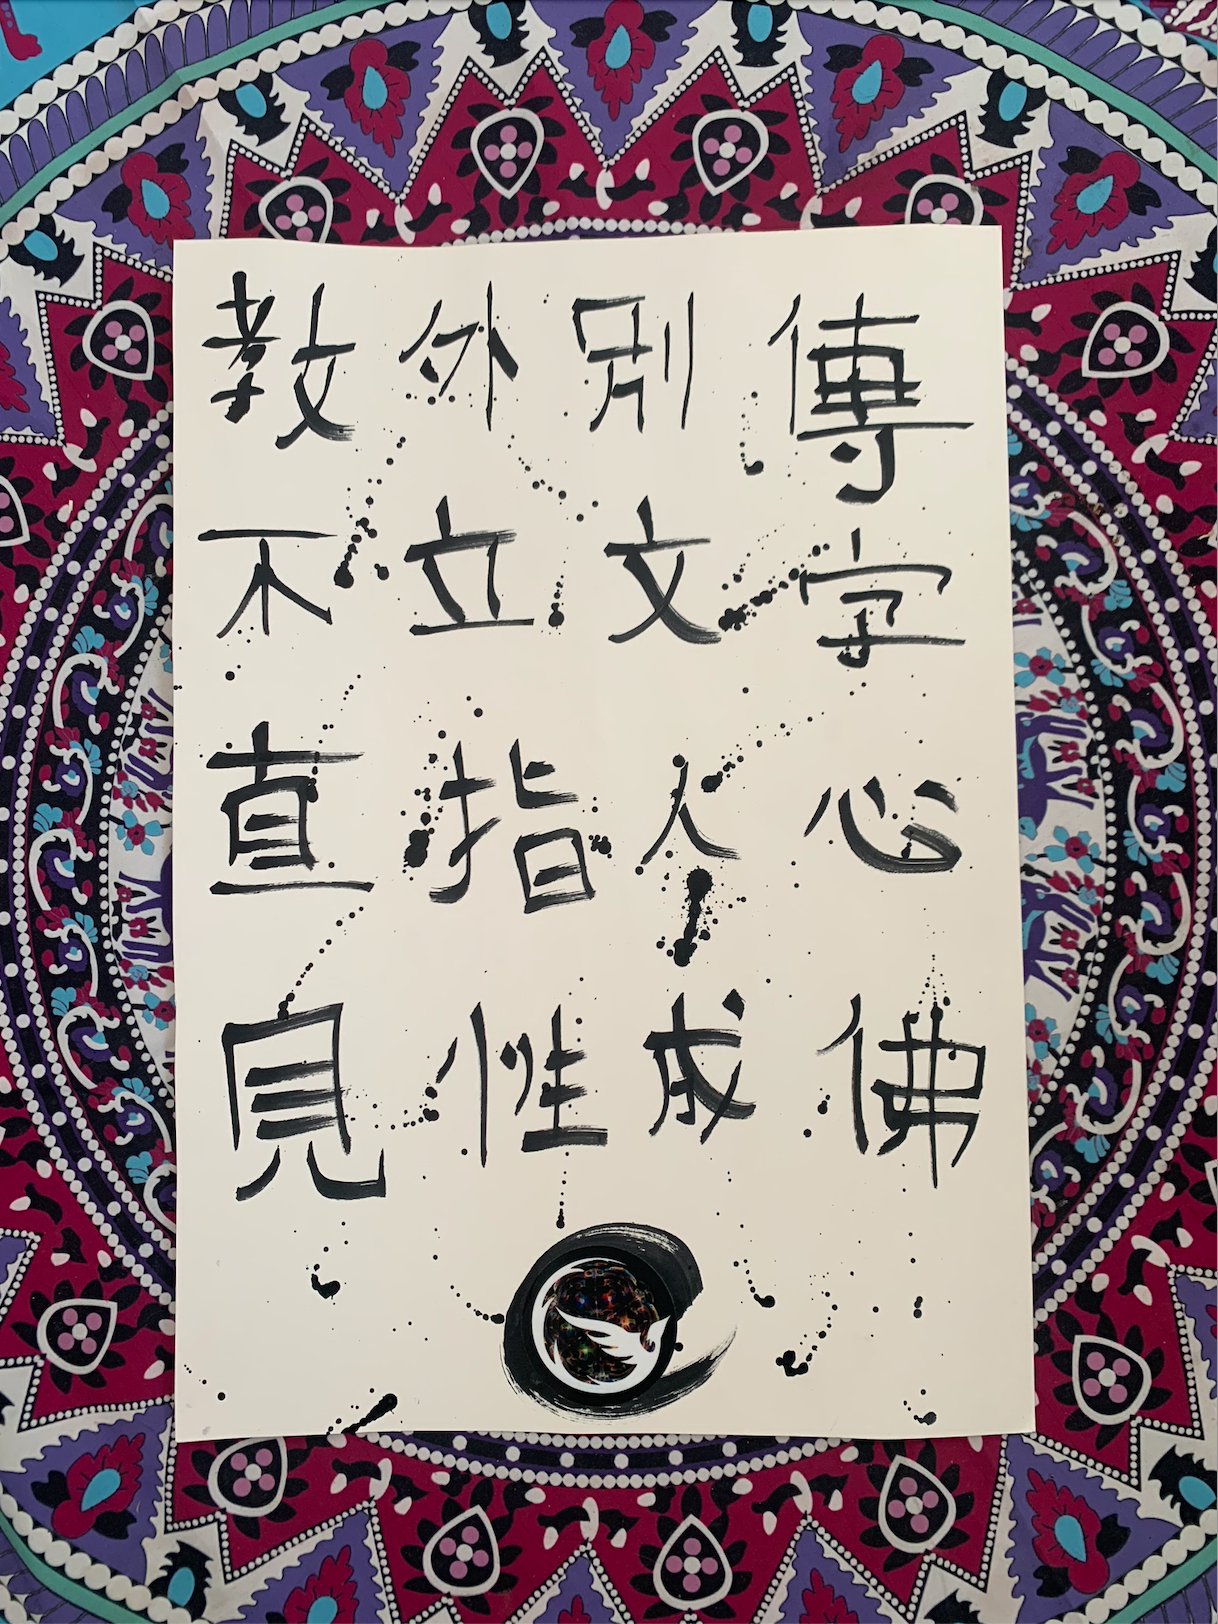 教外別傳
不立文字
直指人心
見性成佛